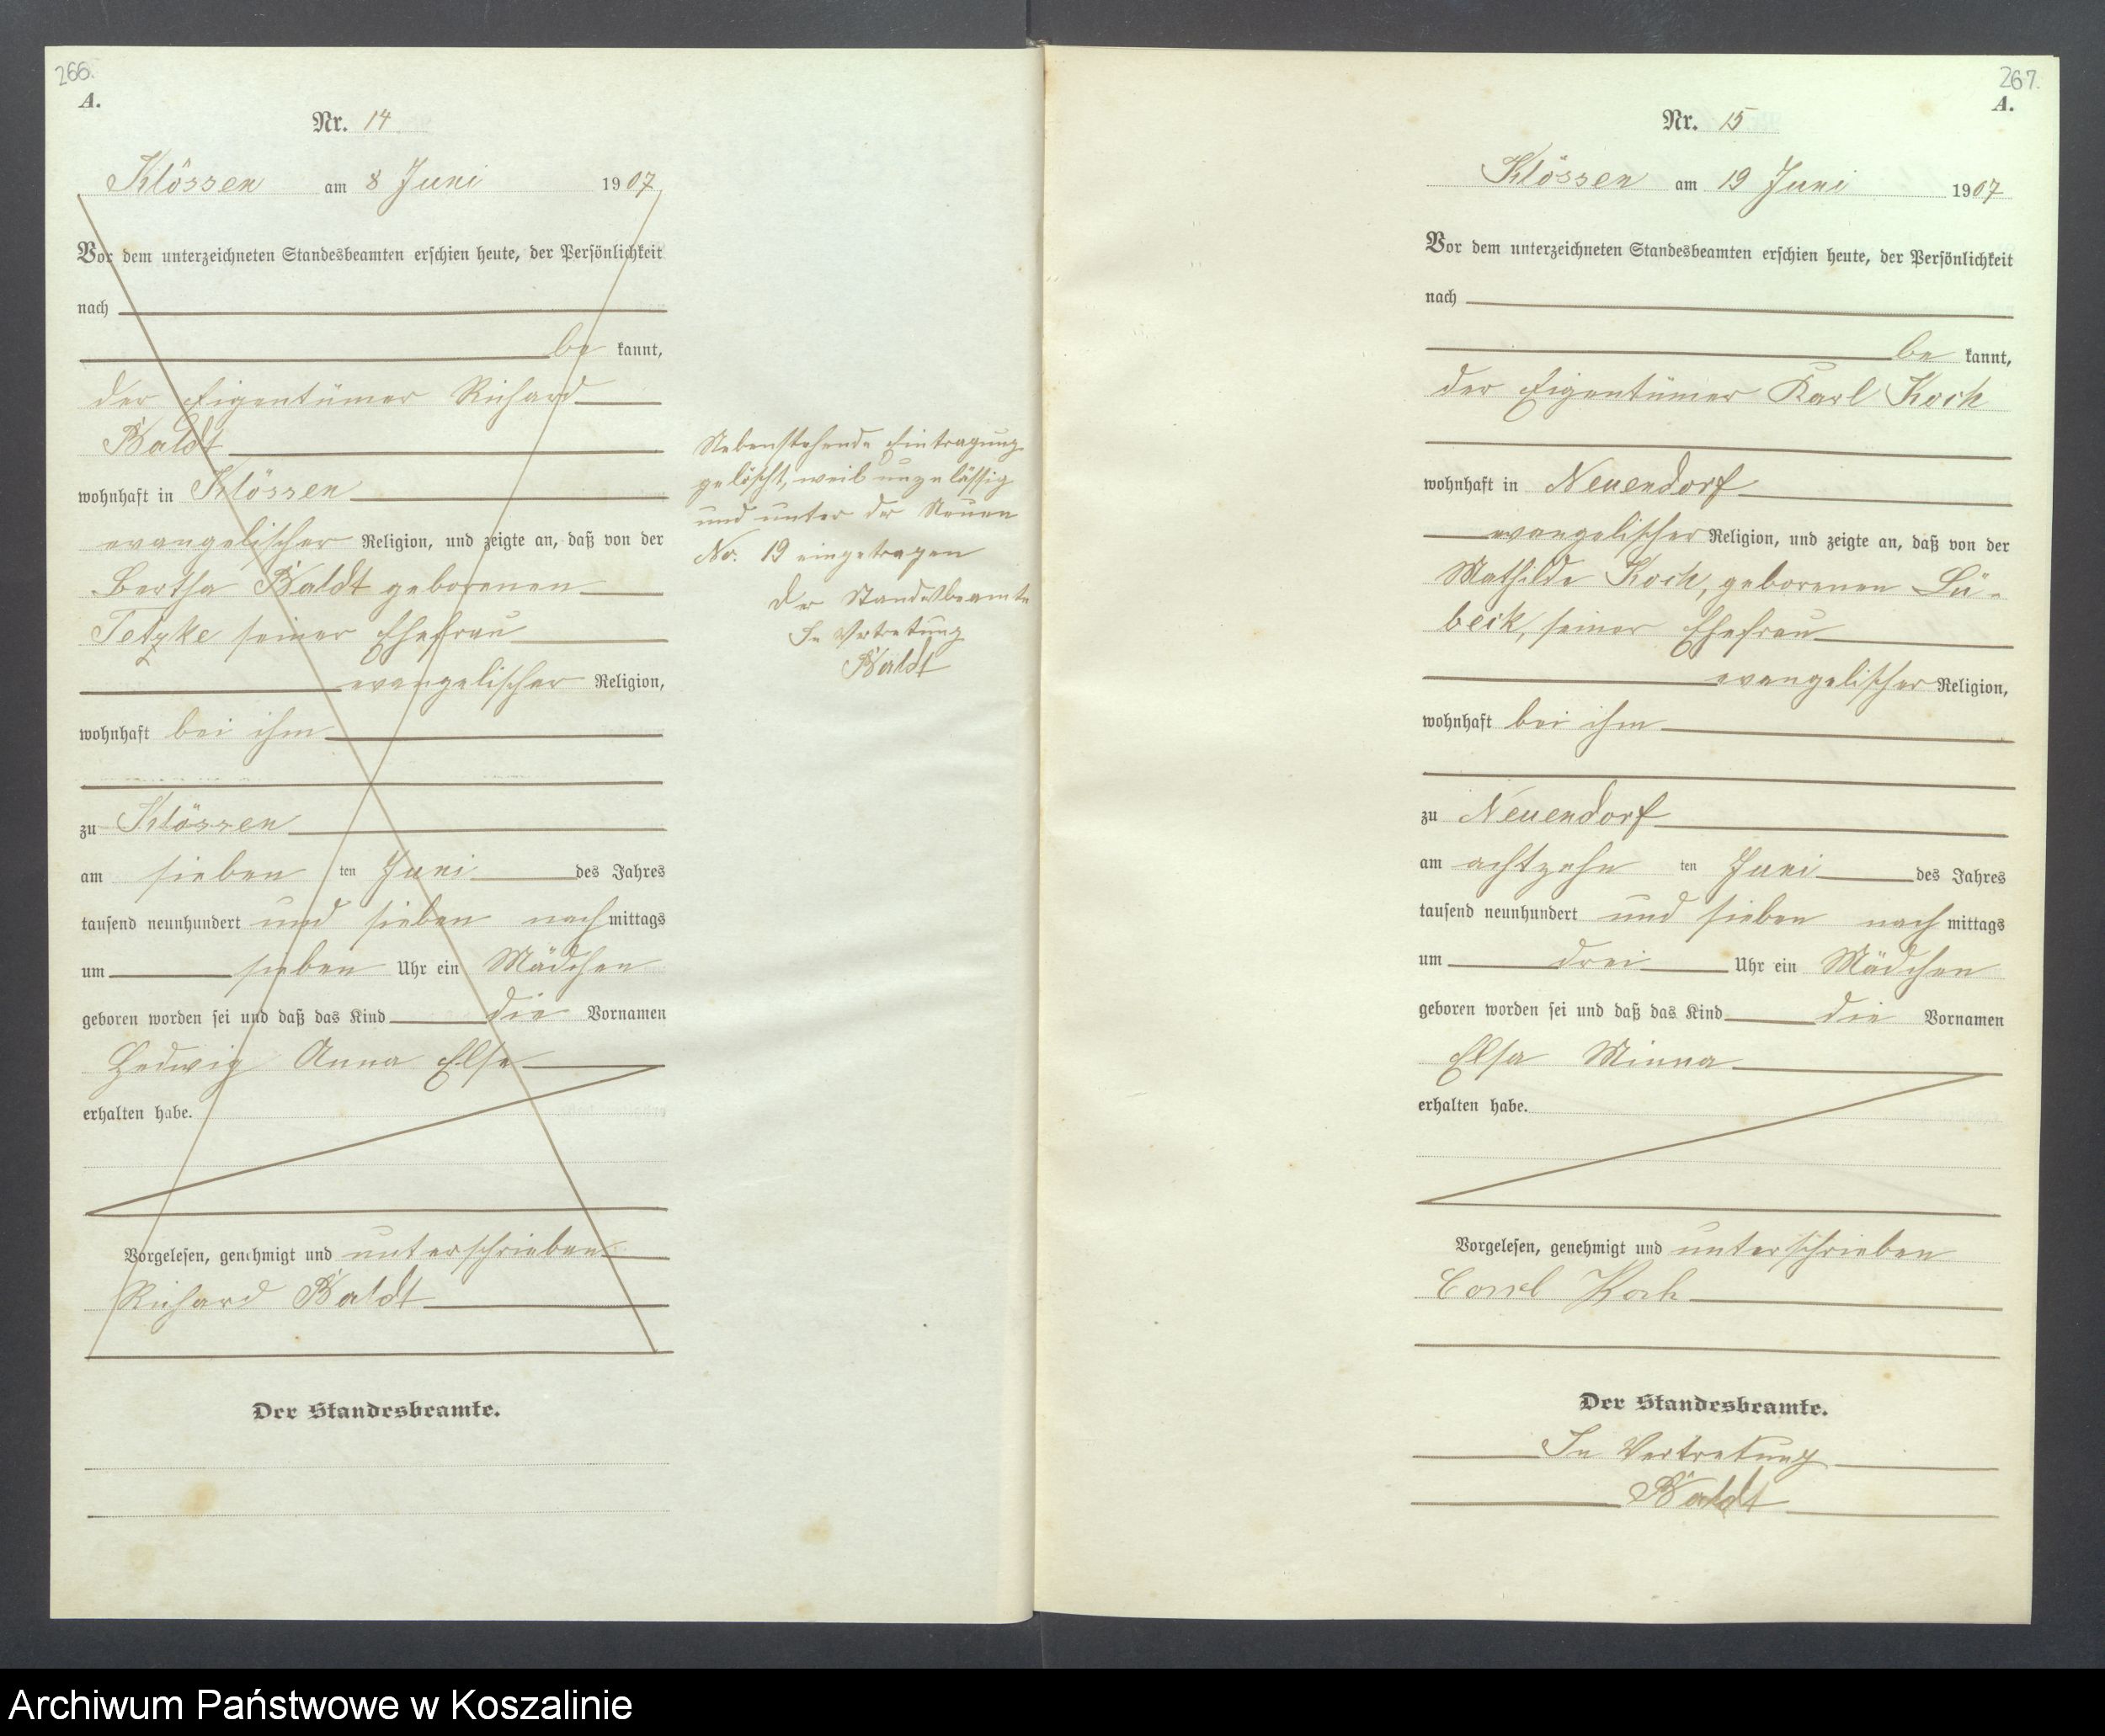 266.
A.
Nr. 14
Klössen am 8 Juni 1907
Vor dem unterzeichneten Standesbeamten erschien heute, der Persönlichkeit
nach
be kannt,
der Eigentümer Richard
Baldt
wohnhaft in Klössen
evangelischer Religion, und zeigte an, daß von der
Bertha Baldt geborenen
Tetzke seiner Ehefrau
evangelischer Religion,
wohnhaft bei ihm
zu Klössen
am sieben ten Juni des Jahres
tausend neunhundert und sieben nach mittags
um sieben Uhr ein Mädchen
geboren worden sei und daß das Kind die Vornamen
Hedwig Anna Else
erhalten habe.
Vorgelesen, genehmigt und unterschrieben
Richard Baldt
Der Standesbeamte.
Nebenstehende Eintragung
gelöscht, weil unzulässig
und unter der Neuen
No. 19 eingetragen
Der Standesbeamte
In Vertretung
Baldt
267.
A.
Nr. 15
Klössen am 19 Juni 1907
Vor dem unterzeichneten Standesbeamten erschien heute, der Persönlichkeit
nach
be kannt,
der Eigentümer Karl Koch
wohnhaft in Neuendorf
evangelischer Religion, und zeigte an, daß von der
Mathilde Koch, geborenen Lü-
beck, seiner Ehefrau
evangelischer Religion,
wohnhaft bei ihm
zu Neuendorf
am achtzehn ten Juni des Jahres
tausend neunhundert und sieben nach mittags
um drei Uhr ein Mädchen
geboren worden sei und daß das Kind die Vornamen
Elsa Minna
erhalten habe.
Vorgelesen, genehmigt und unterschrieben
Carl Koch
Der Standesbeamte.
In Vertretung
Baldt
Archiwum Państwowe w Koszalinie